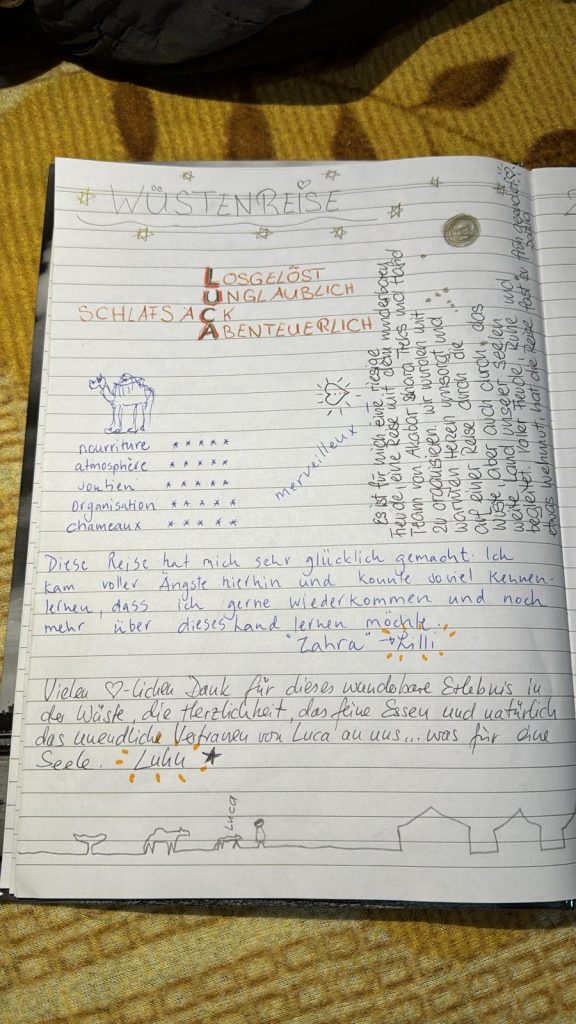 WÜSTENREISE
LOSGELÖST
UNGLAUBLICH
SCHLAFSACK
ABENTEUERLICH
nourriture * * * * *
atmosphère * * * * *
* * * * *
organisation * * * * *
chameaux * * * * *
merveilleux
Es ist für mich eine riesige
Freude eine Reise mit dem wunderbaren
Team von Akabar Sahara Treks und Hafid
zu organisieren. Wir wurden mit
warmen Herzen umsorgt und
auf einer Reise durch die
Wüste aber auch durch das
weite Land unserer Seelen
begleitet. Voller Freude, Ruhe und
etwas Wehmut, hat die Reise fast zu früh geendet
Diese Reise hat mich sehr glücklich gemacht. Ich
kam voller Ängste hierhin und konnte soviel kennen-
lernen, dass ich gerne wiederkommen und noch
mehr über dieses Land lernen möchte.
"Zahra" → Lilli
Vielen ♡-lichen Dank für dieses wunderbare Erlebnis in
der Wüste, die Herzlichkeit, das feine Essen und natürlich
das unendliche Vertrauen von Luca an uns... was für eine
Seele.
Luca